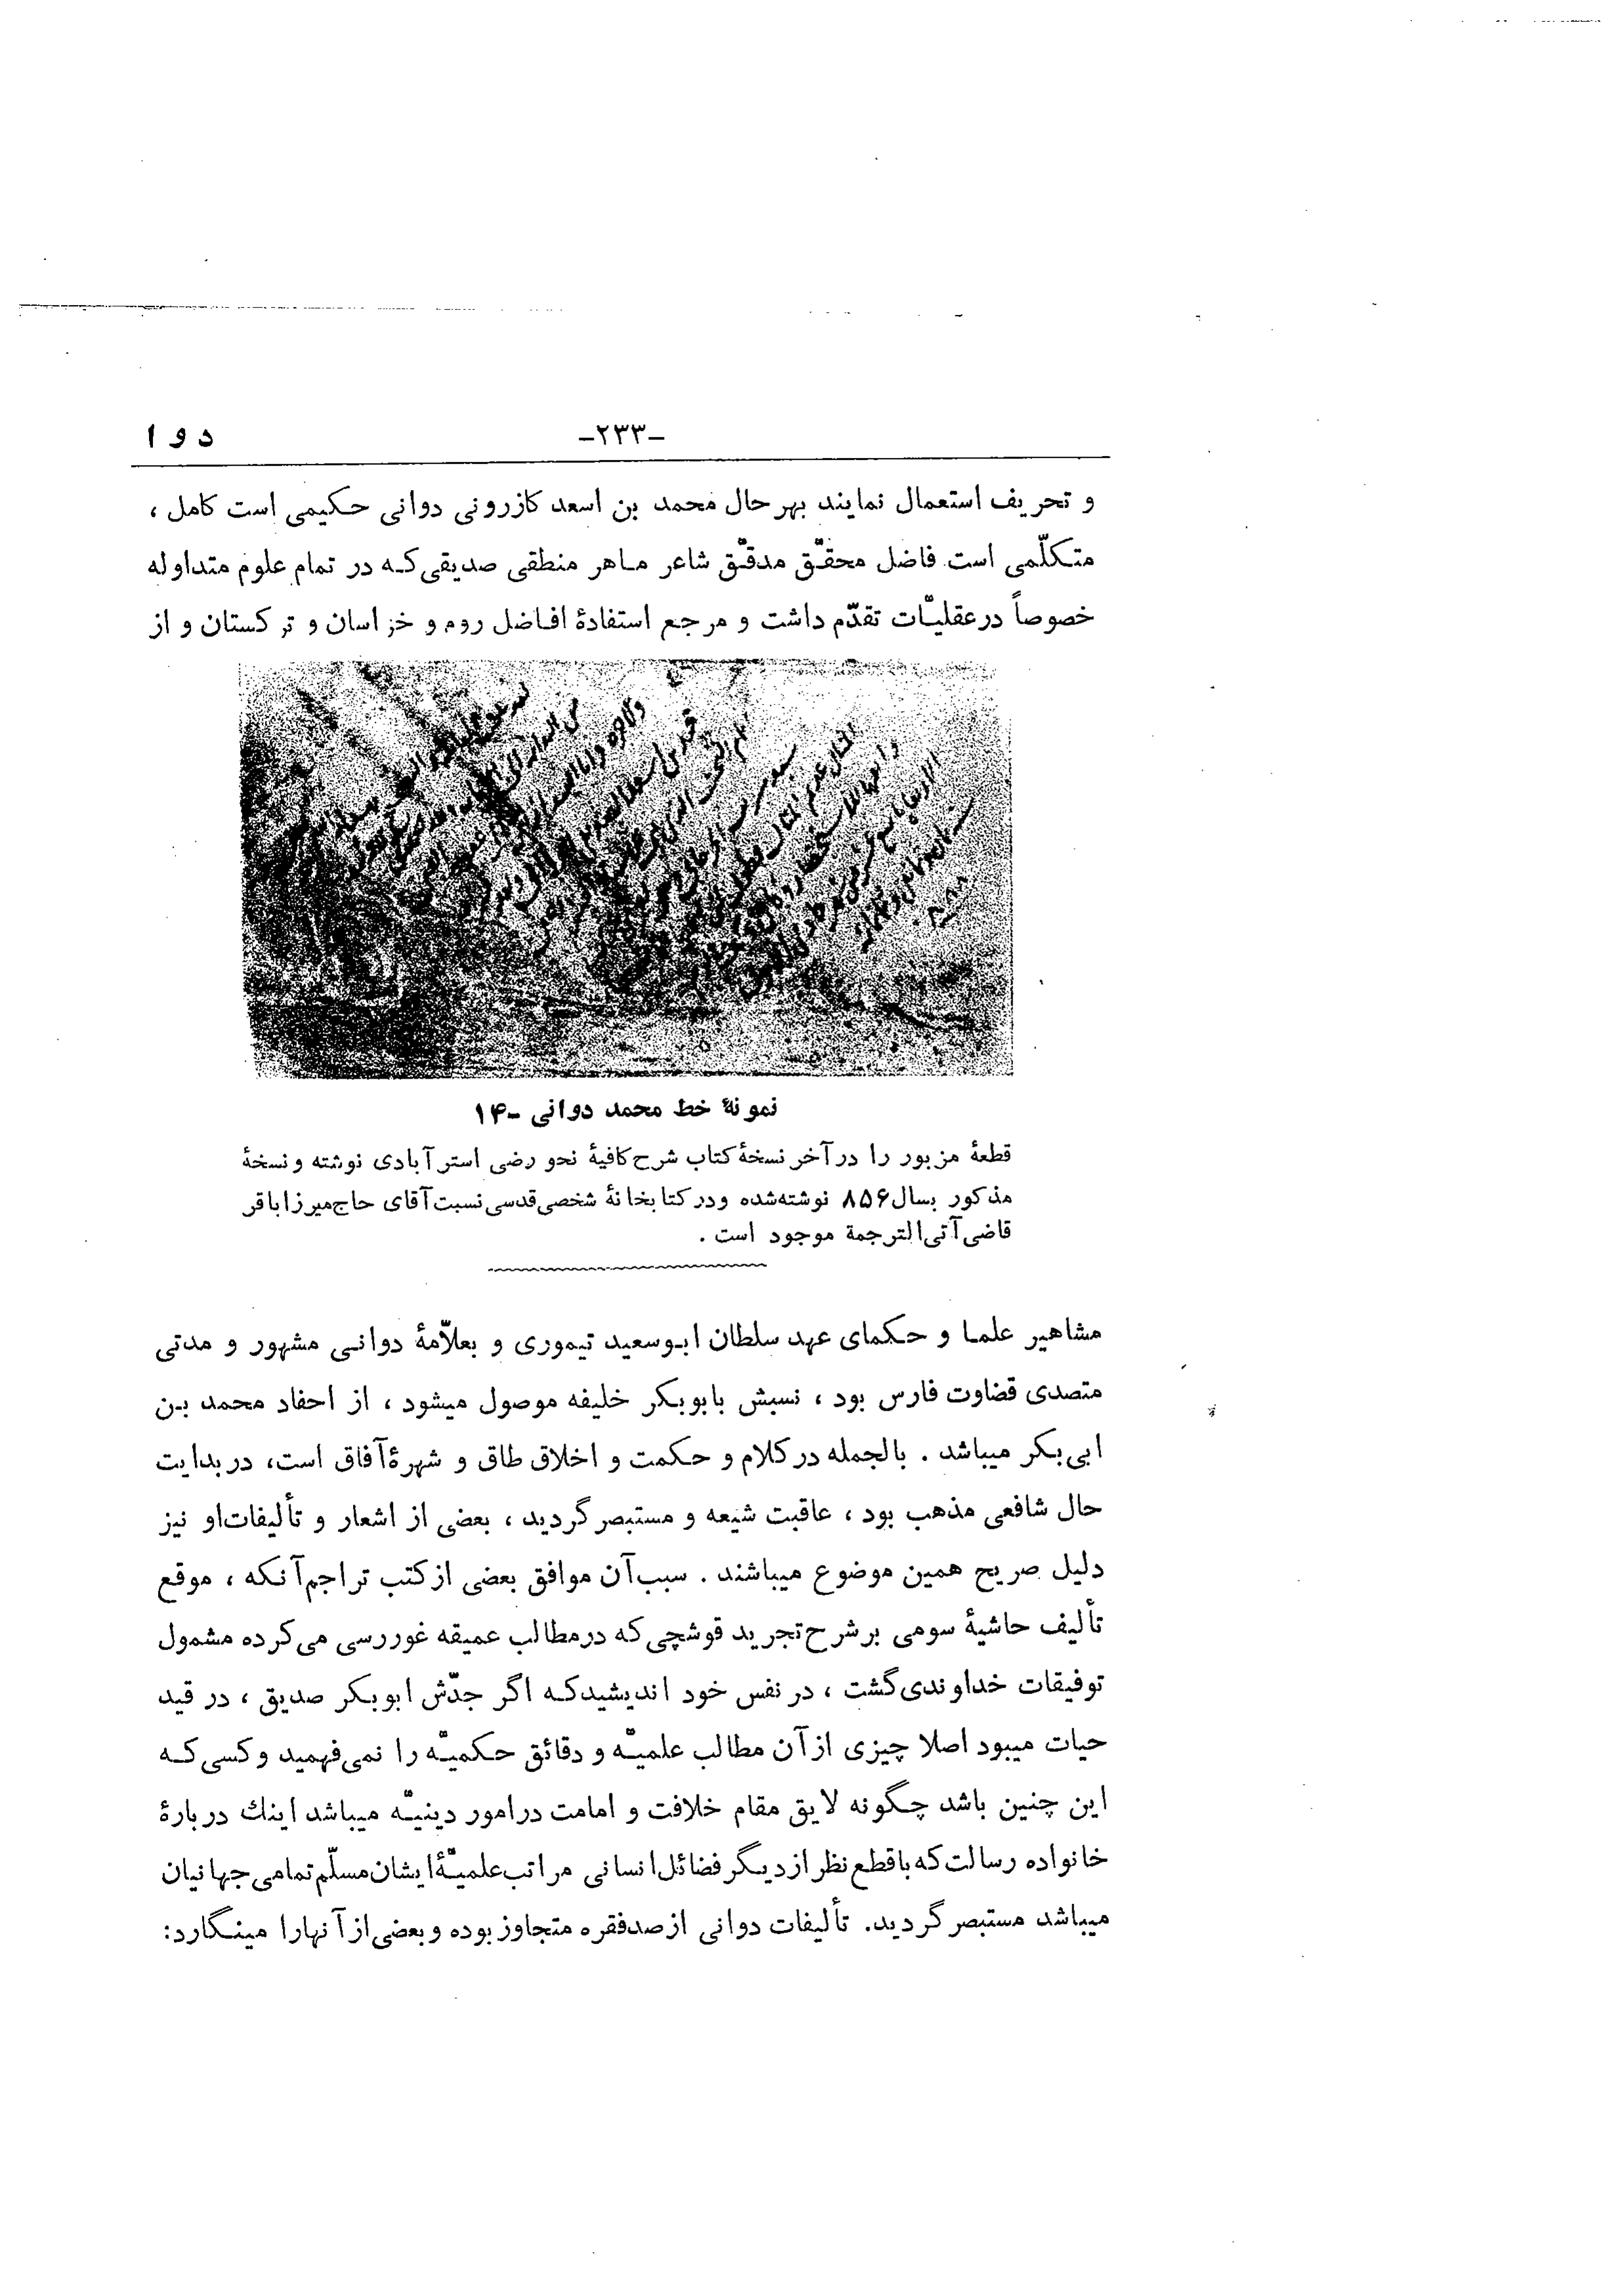 دوا -۲۳۳-
و تحریف استعمال نمایند بهر حال محمد بن اسعد کازرونی دوانی حکیمی است کامل ،
متکلّمی است فاضل محقّق مدقّق شاعر ماهر منطقی صدیقی که در تمام علوم متداوله
خصوصاً در عقلیّات تقدّم داشت و مرجع استفادهٔ افاضل روم و خراسان و ترکستان و از
نمونهٔ خط محمد دوانی -۱۴
قطعهٔ مزبور را در آخر نسخهٔ کتاب شرح کافیهٔ نحو رضی استرآبادی نوشته و نسخهٔ
مذکور بسال ۸۵۶ نوشته شده و در کتابخانهٔ شخصی قدسی نسبت آقای حاج میرزا باقر
قاضی آتی الترجمة موجود است .
مشاهیر علما و حکمای عهد سلطان ابوسعید تیموری و بعلاّمهٔ دوانی مشهور و مدتی
متصدی قضاوت فارس بود ، نسبش بابوبکر خلیفه موصول میشود ، از احفاد محمد بن
ابی بکر میباشد . بالجمله در کلام و حکمت و اخلاق طاق و شهرهٔ آفاق است، در بدایت
حال شافعی مذهب بود ، عاقبت شیعه و مستبصر گردید ، بعضی از اشعار و تألیفات او نیز
دلیل صریح همین موضوع میباشند . سبب آن موافق بعضی از کتب تراجم آنکه ، موقع
تألیف حاشیهٔ سومی بر شرح تجرید قوشچی که در مطالب عمیقه غوررسی می کرده مشمول
توفیقات خداوندی گشت ، در نفس خود اندیشید که اگر جدّش ابوبکر صدیق ، در قید
حیات میبود اصلا چیزی از آن مطالب علمیّه و دقائق حکمیّه را نمی فهمید و کسی که
این چنین باشد چگونه لایق مقام خلافت و امامت در امور دینیّه میباشد اینك در بارهٔ
خانواده رسالت که با قطع نظر از دیگر فضائل انسانی مراتب علمیّهٔ ایشان مسلّم تمامی جهانیان
میباشد مستبصر گردید. تألیفات دوانی از صد فقره متجاوز بوده و بعضی از آنها را مینگارد: